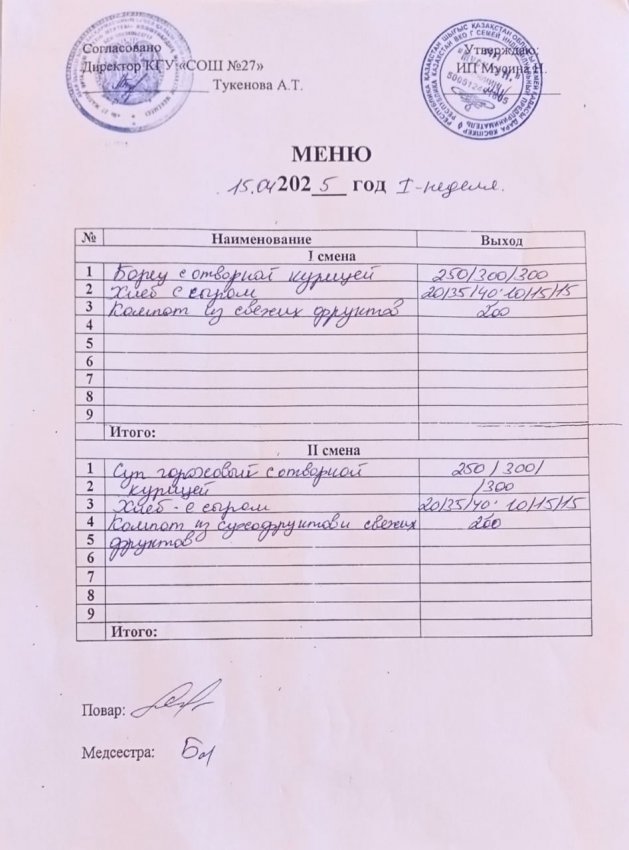 Согласовано
Директор КГУ «СОШ №27»
Тукенова А.Т.
Утверждаю:
ИП Мусина Н.
МЕНЮ
15.04 2025 год I-неделя.
№ Наименование Выход
I смена
1 Борщ с отворной курицей 250/300/300
2 Хлеб с сыром 20/35/40: 10/15/15
3 Компот из свежих фруктов 200
4
5
6
7
8
9
Итого:
II смена
1 Суп гороховый с отворной 250/300/
2 курицей /300
3 Хлеб - с сыром 20/35/40: 10/15/15
4 Компот из сухофруктов и свежих 200
5 фруктов
6
7
8
9
Итого:
Повар:
Медсестра: